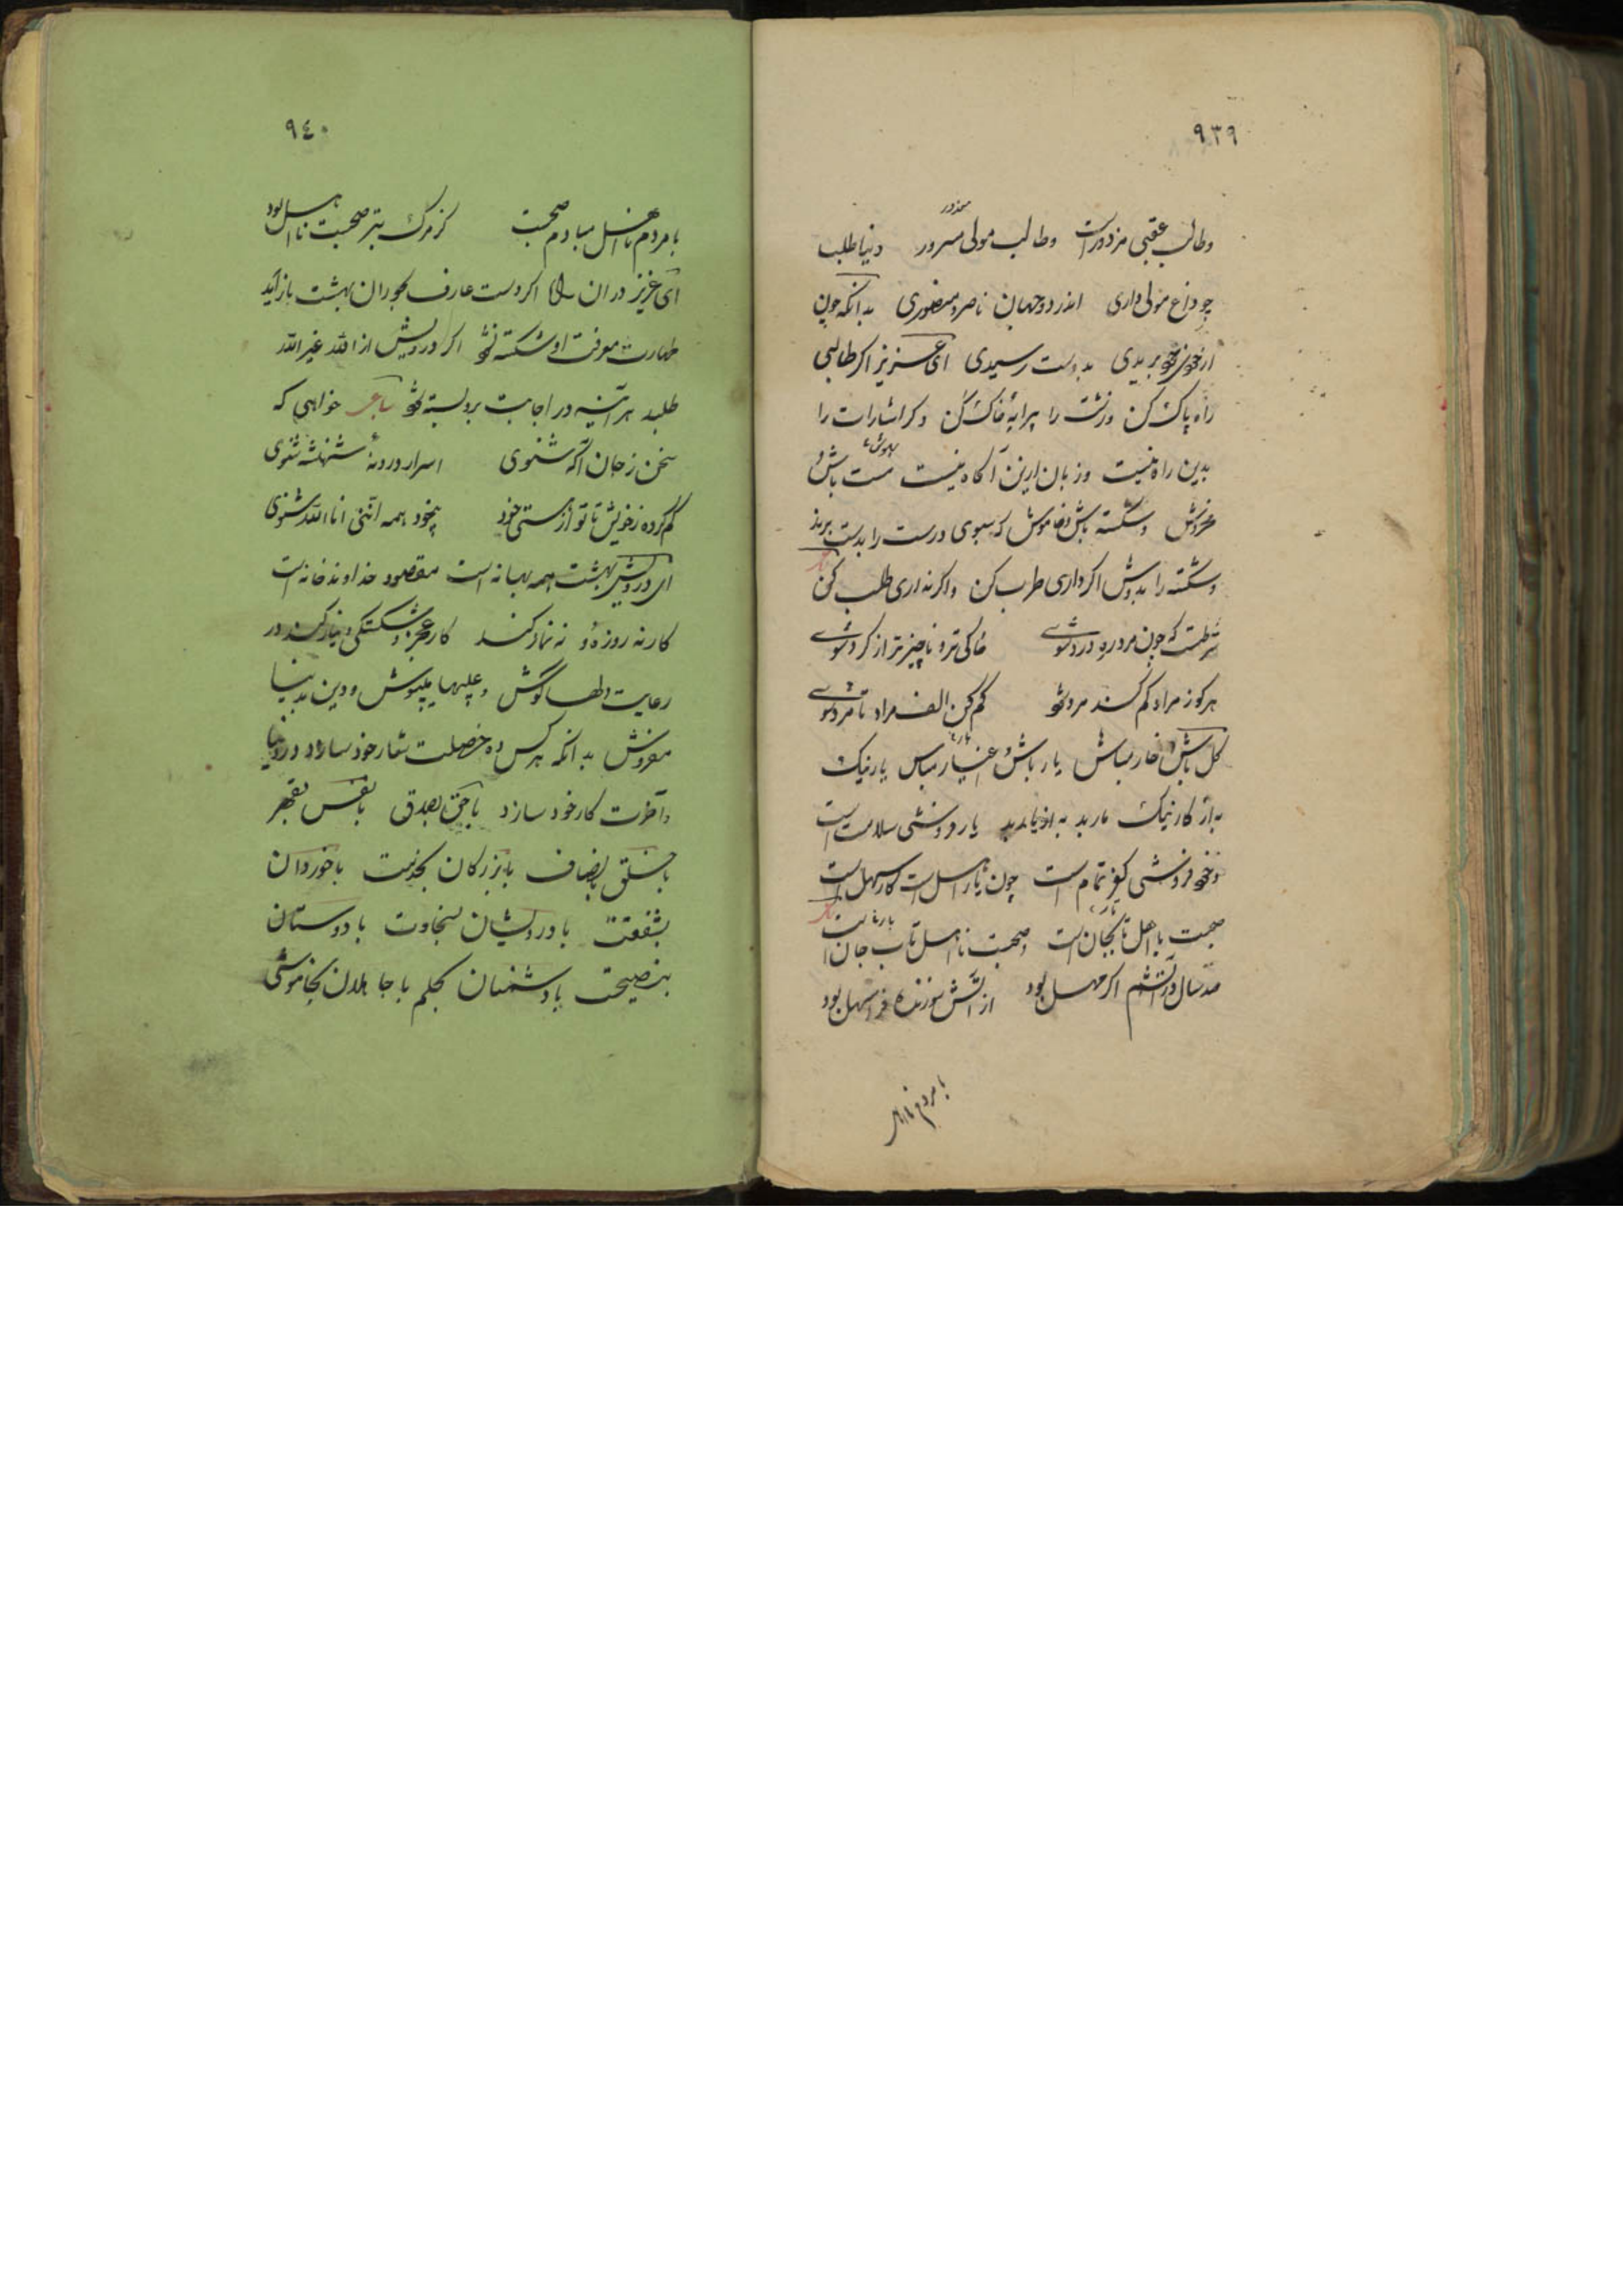 ۹۳۹
وطالب عقبی مزدور است وطالب مولی مسرور دنیا طلب
چو داغ مولی داری اندر دو جهان ناصر و منصوری بدانکه چون
از خود بریدی بدوست رسیدی ای عزیز اگر طالبی
راه پاک کن و زشت را پیرایهٔ خاک کن و گر اشارات را
بدین راه نیست وزبان ازین آگاه نیست مست باش و
مخروش و شکسته باش و خاموش که سبوی درست را بدست برند
و شکسته را بدوش اگر داری طرب کن و اگر نداری طلب کن
شرطست که چون مرد ره درد شوی خاکی تر و ناچیز تر از گرد شوی
هر کو ز مراد کم کند مرد شود کم کن الف مراد تا مرد شوی
گل باش و خار مباش یار باش و اغیار مباش یار نیک
به از کار نیک مار بد به از یار بد یار فروشی سلامت است
و خود فروشی کفر تمام است چون یار اهل است کار سهل است
صحبت با اهل تابجان است وصحبت نا اهل تاب جان است
صد سال در آتشم اگر مهل بود از آتش سوزنده مرا سهل بود
با مردم نا اهل
۹٤۰
با مردم نا اهل مبادم صحبت کز مرگ بتر صحبت نا اهل بود
ای عزیز در ان اگر دست عارف بحوران بهشت باز آید
طهارت معرفت او شکسته شود اگر درویش از الله غیر الله
طلبد هر آینه در اجابت بر و بسته شود خواهی که
سخن ز جان آگه شنوی اسرار درونهٔ شهنشه شنوی
گم گرده ز خویش تا تو از هستی خود بیخود همه اننی انا الله شنوی
ای درویش بهشت همه بهانه است مقصود خداوند خانه است
کار نه روزه و نه نماز کند کار عجز و شکستگی و نیاز کند در
رعایت دلها کوش و عیبها بپوش و دین بدنیا
مفروش بدانکه هر کس ده خصلت شعار خود سازد در دنیا
و آخرت کار خود سازد با حق بصدق با نفس بقهر
با خلق بانصاف با بزرگان بخدمت با خوردان
بشفقت با درویشان بسخاوت با دوستان
بنصیحت با دشمنان بحلم با جاهلان بخاموشی